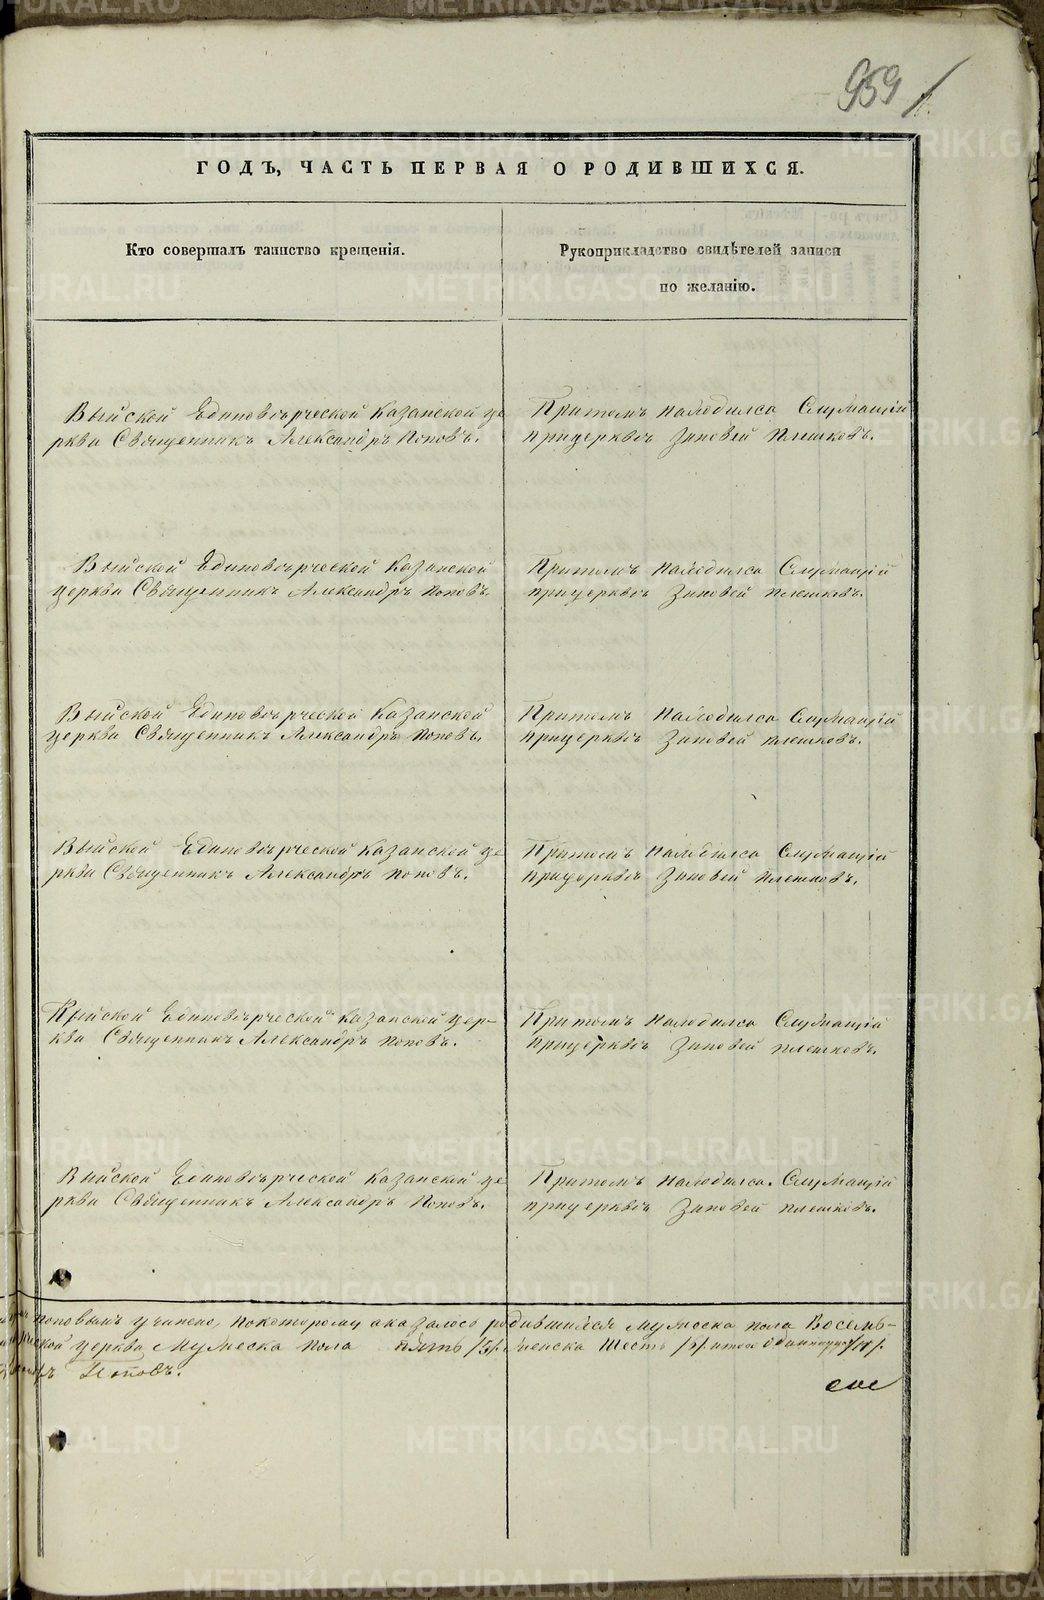 959
ГОДЪ, ЧАСТЬ ПЕРВАЯ О РОДИВШИХСЯ.
Кто совершалъ таинство крещенія.
Рукоприкладство свидѣтелей записи
по желанію.
Выйской Единовѣрческой Казанской це
рква Священникъ Александръ Поповъ.
Притомъ находилса Служащій
прицерквѣ Зиновей Плешковъ.
Выйской Единовѣрческой Казанской
церква Священникъ Александръ Поповъ
Притомъ находилса Служащій
прицерквѣ Зиновей Плешковъ.
Выйской Единовѣрческой Казанской
церква Священникъ Александръ Поповъ.
Притомъ Находилса Служащій
прицерквѣ Зиновей плешковъ.
Выйской Единовѣрческой казанской це
рква Священникъ Александръ Поповъ.
Притомъ Находилса Служащій
прицерквѣ Зиновей Плешковъ.
Выйской Единовѣрческой казанской цер-
ква Священникъ Александръ Поповъ.
Притомъ Находилса Служащій
прицерквѣ Зиновей плешковъ.
Выйской Единовѣрческой Казанской це
рква Священникъ Александръ Поповъ.
Притомъ находилса Служащій
прицерквѣ Зиновей плешковъ.
поповымъ учинено, покоторому оказалосо родившихся Мужеска пола Восемь-
церква Мужеска пола пять /5/. женска Шесть /6/. итого
Поповъ.
METRIKI.GASO-URAL.RU